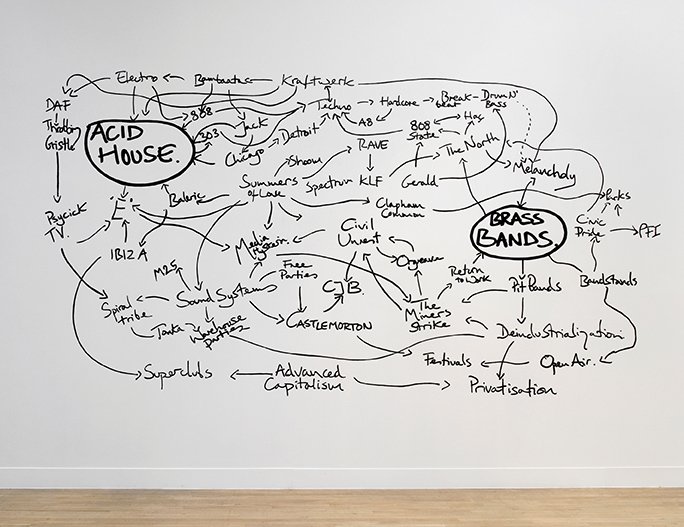 Electro
Bambaataa
Kraftwerk
DAF
Throbbing
Gristle
ACID
HOUSE.
808
303
Jack
Chicago
Detroit
Techno
Hardcore
Break
beat
Drum N'
Bass
A8
808
State
Hag
The North
Melancholy
Shoom
RAVE
Summers
of Love
Spectrum
KLF
Gerald
Clapham
Common
Balaric
E.
Psycick
TV.
IBIZA
BRASS
BANDS.
Parks
Civic
Pride
PFI
Media
Hysteria.
Civil
Unrest
Orgreave
Free
Parties
CJB.
Return
to Work
Pit Bands
Bandstands
M25
Sound Systems
Spiral
tribe
Tonka
Warehouse
parties
CASTLEMORTON
The
Miners
Strike
Deindustrialization
Superclubs
Advanced
Capitalism
Festivals
Open Air.
Privatisation